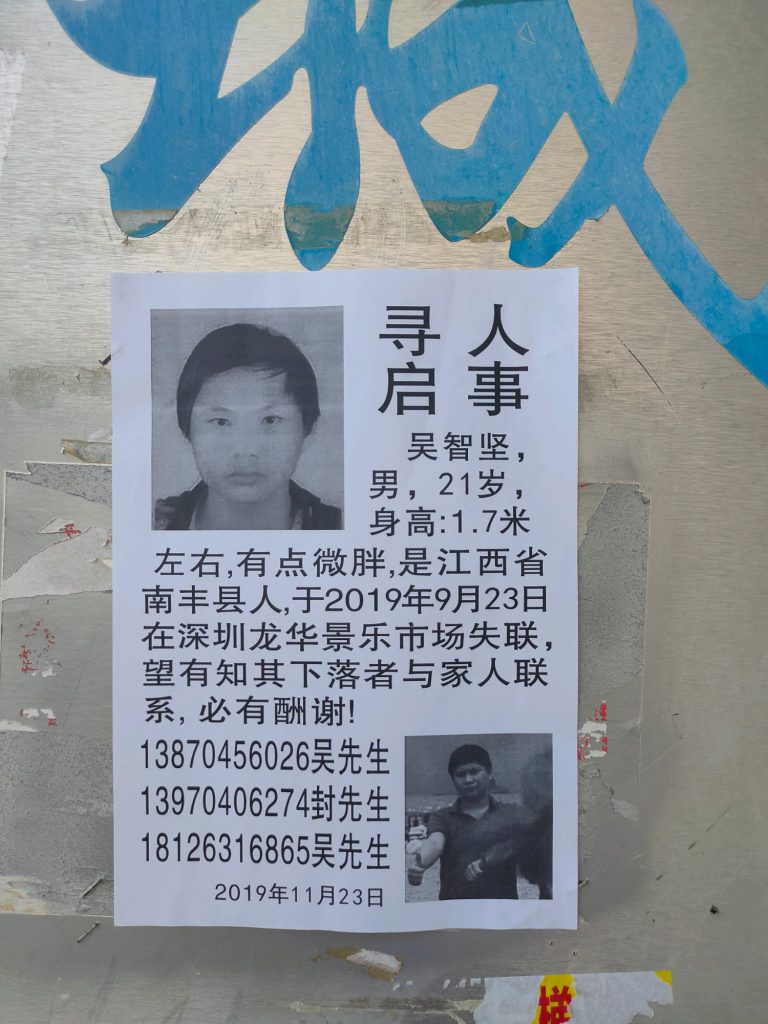 城
寻人
启事
吴智坚，
男，21岁，
身高:1.7米
左右,有点微胖,是江西省
南丰县人,于2019年9月23日
在深圳龙华景乐市场失联，
望有知其下落者与家人联
系,必有酬谢!
13870456026吴先生
13970406274封先生
18126316865吴先生
2019年11月23日